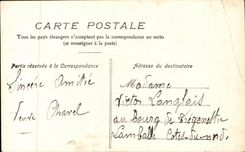 CARTE POSTALE
Tous les pays étrangers n'acceptent pas la correspondance au recto
(se renseigner à la poste)
Partie réservée à la Correspondance
Adresse du destinataire
Sincère Amitié
Madame
Victor Langlais
au Bourg de
Lamballe Côtes du nord.